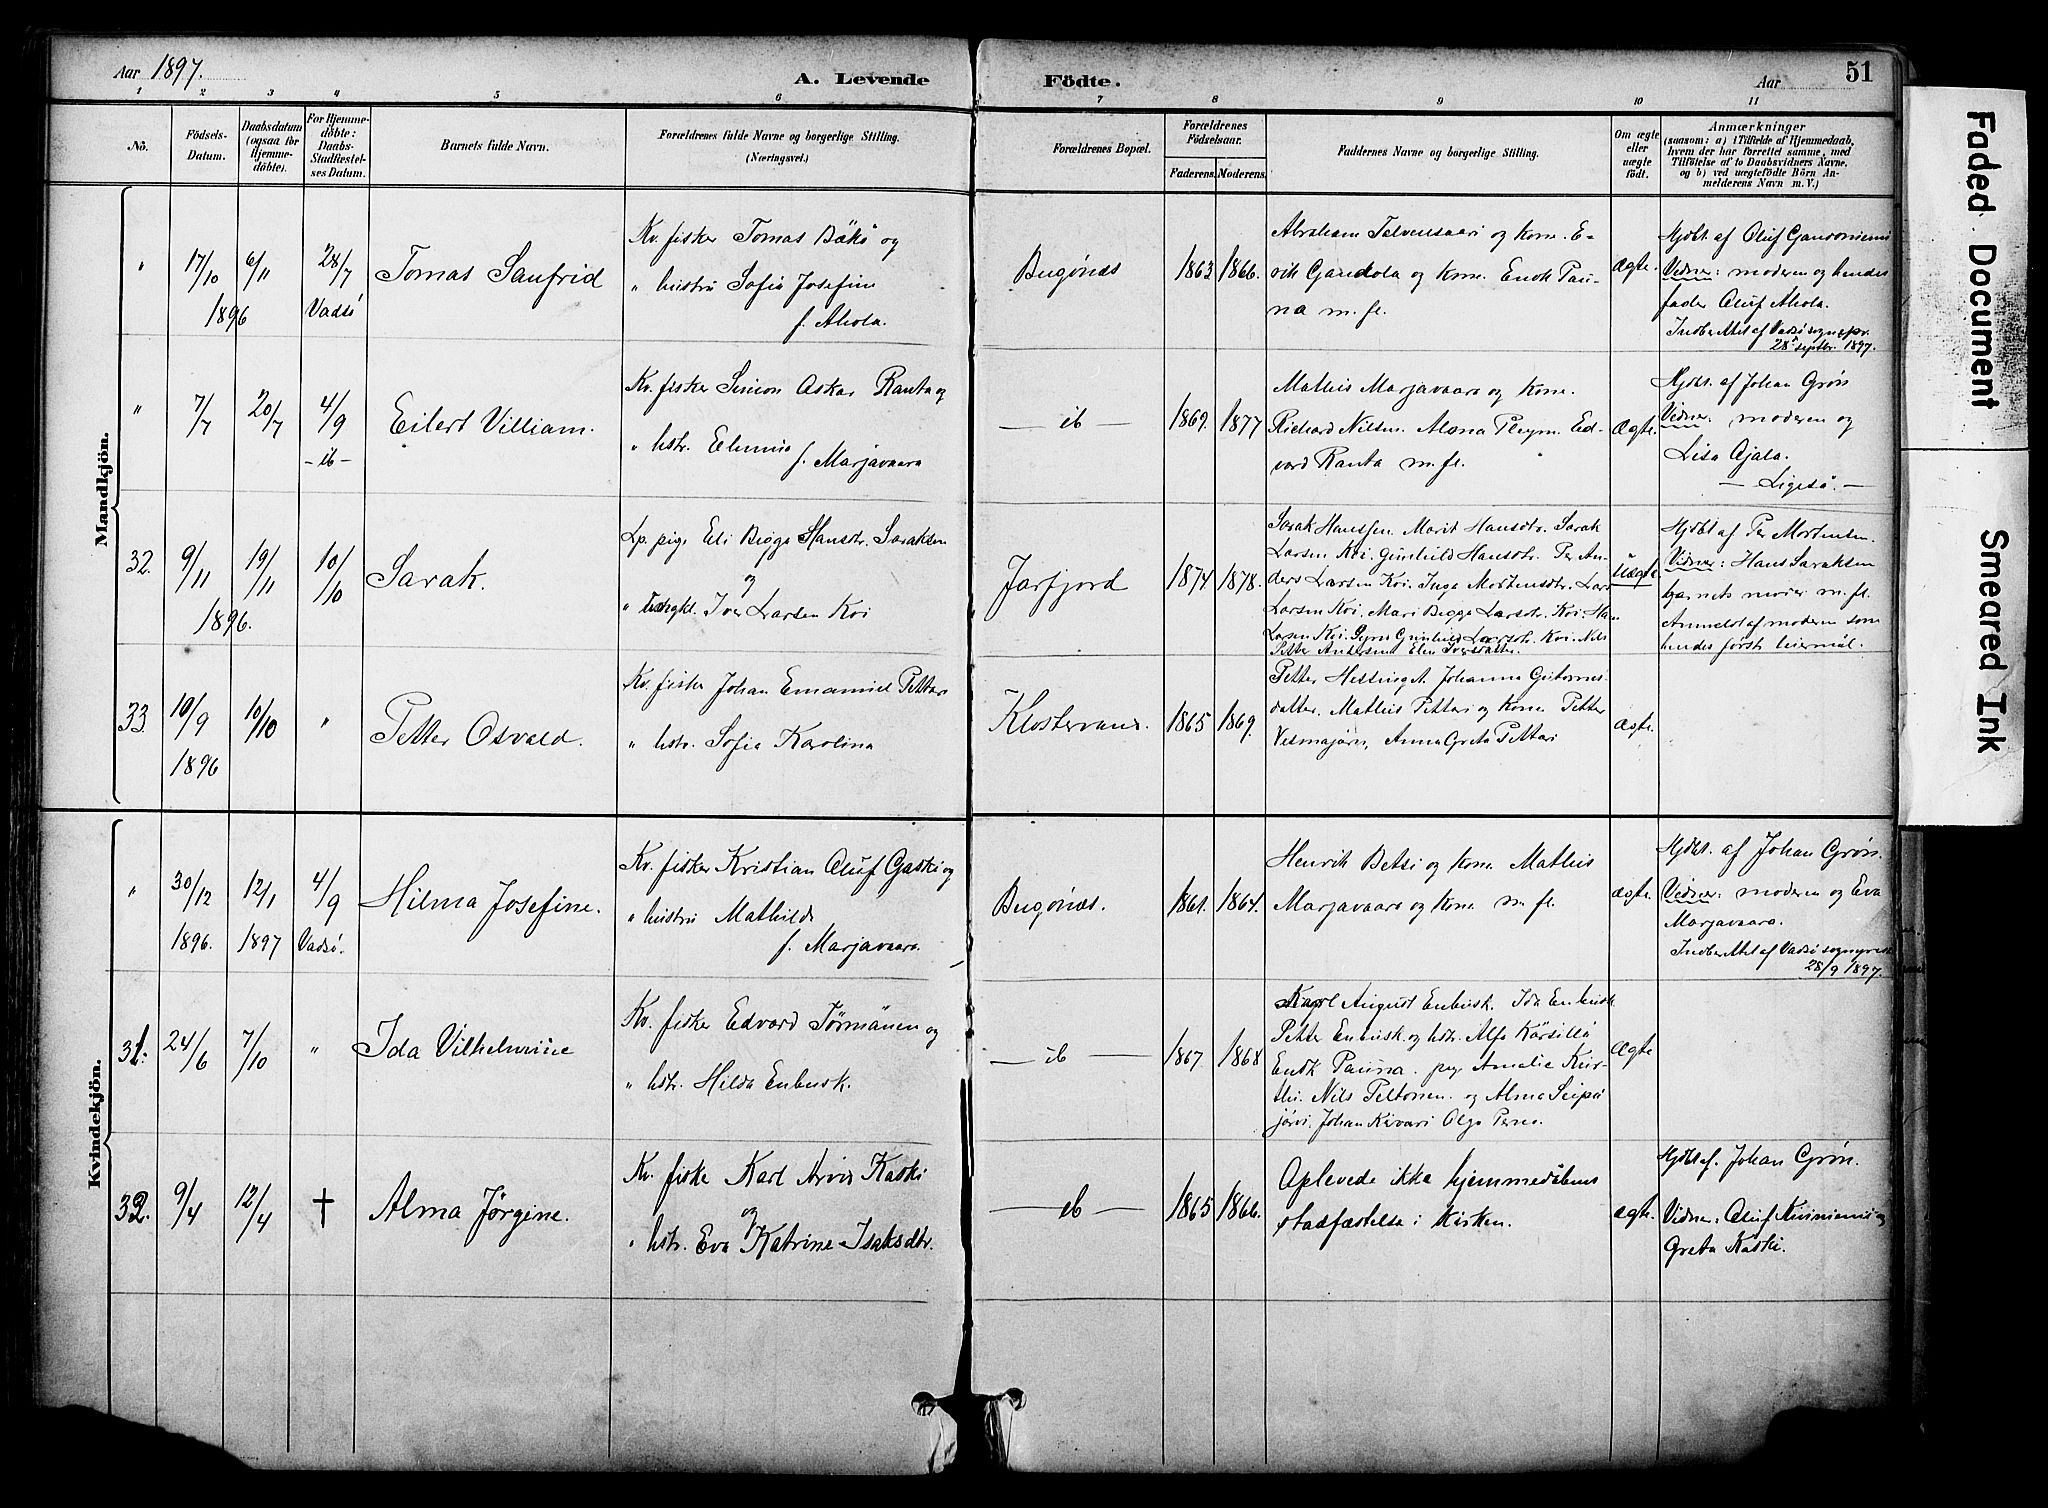 Aar 1897.
A. Levende
Födte.
Aar
51
1 2 3 4 5 6 7 8 9 10 11
No.
Födsels-
Datum.
Daabsdatum
(ogsaa for
Hjemme-
döbte).
For Hjemme-
döbte:
Daabs-
Stadfæstel-
ses Datum.
Barnets fulde Navn.
Forældrenes fulde Navne og borgerlige Stilling.
(Næringsvei.)
Forældrenes Bopæl.
Forældrenes
Födselsaar.
Faderens. Moderens.
Faddernes Navne og borgerlige Stilling.
Om ægte
eller
uægte
födt.
Anmærkninger
(saasom: a) i Tilfælde af Hjemmedaab,
hvem der har forrettet samme, med
Tilföielse af to Daabsvidners Navne,
og b) ved uægtefödte Börn An-
melderens Navn m. V.)
Mandkjön.
"
17/10
1896
6/11
28/7
Vadsö
Tomas Saufrid
Kv. fisker Tomas Bäkö og
" hustru Sofia Josefine
f. Ahola.
Bugönäs
1863
1866.
Abraham Talvensaari og kone. E-
rik Gandola og kone. Enok Pau-
na m. fl.
ægte.
Hjdbt. af Oluf
Vidner: moderen og hendes
fader Oluf Ahola.
Indberettet af Vadsö sognepr.
28. septbr. 1897.
"
7/7
20/7
4/9
- ib -
Eilert Villiam.
Kv. fisker Simon Askar Ranta og
" hstr. f. Marjavaara
- ib -
1869.
1877
Mathis Marjavaara og kone.
Richard Nilsen. Alma Pleym. Ed-
vard Ranta m. fl.
ægte.
Hjdbt. af Johan Grön
Vidner: moderen og
Lisa Ojala.
- Ligeså. -
32.
9/11
1896.
19/11
10/10
Sarak.
Lp. pige Eli Bigga Hansdtr. Saraksen
og
" Iver Larsen Koi
Jarfjord
1874.
1878.
Sarak Hanssen. Marit Hansdtr. Sarak
Larsen Koi. Gunhild Hansdtr. Per An-
ders Larsen Koi. Inga Mortensdtr. Lars
Larsen Koi. Mari Bigga Larsdtr. Koi. Han
Larsen Koi. Gunhild Larsdtr. Koi. Nils
Petter Andersen Elen Iversdatter.
Uægte.
Hjdbt. af Per Mortensen.
Vidner: Hans Saraksen
barnets moder m. fl.
Anmeldt af moderen som
hendes förste leiermål.
33.
10/9
1896
10/10
"
Petter Osvald.
Kv. fisker Johan Emanuel Pettari
" hstr. Sofia Karolina
Klostervand.
1865
1869.
Petter Johanna
datter. Mathis Pettari og kone Petter
Vesmajärvi, Anna Greta Pettari
ægte.
Kvindekjön.
"
30/12
1896.
12/1
1897
4/9
Vadsö.
Hilma Josefine.
Kv. fisker Kristian Oluf Gaski og
" hustru Mathilde
f. Marjavaara.
Bugönäs.
1861.
1864.
Henrik Betsi og kone Mathis
Marjavaara og kone m. fl.
ægte.
Hjdbt. af Johan Grön.
Vidner: moderen og Eva
Marjavaara.
Indberettet af Vadsö sognepræst
28/9 1897.
31.
24/6
7/10
"
Ida Vilhelmine
Kv. fisker Edvard Törmänen og
" hstr. Hilda Enbusk.
- ib -
1867.
1868
Karl August Enbusk. Ida Enbusk
Petter Enbusk og hstr. Alfa
Enok Pauna. pige Amalie Kur-
thi. Nils Peltonen. og Alma Seipä
järvi. Johan Olga Perno.
ægte
32.
9/4
12/4
†
Alma Jørgine.
Kv. fiske Karl Arvid Kaski
og
" hstr. Eva Katrine Isaksdtr.
- ib -
1865
1866.
Oplevede ikke hjemmedåbens
stadfæstelse i kirken.
ægte.
Hjdbt af. Johan Grön.
Vidner: Oluf Kiviniemi og
Greta Kaski.
Faded Document
Smeared Ink